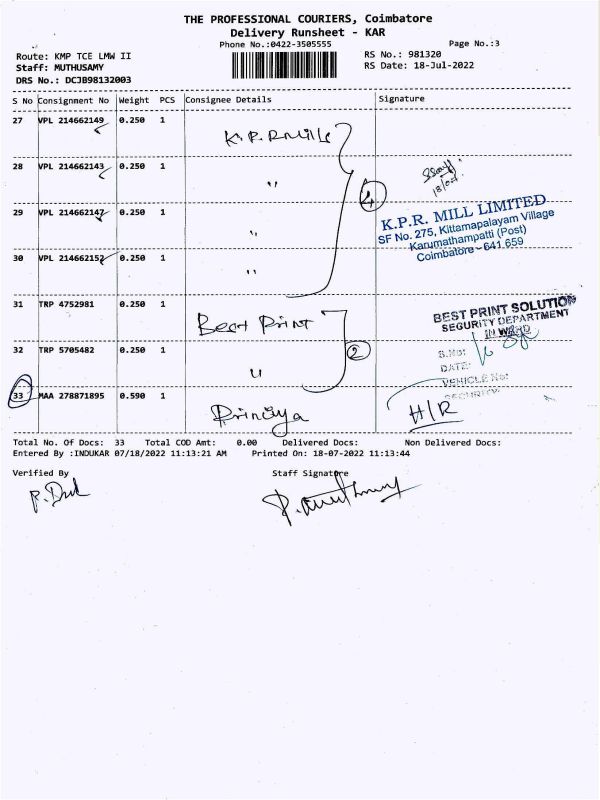 THE PROFESSIONAL COURIERS, Coimbatore
Delivery Runsheet - KAR
Phone No.:0422-3505555
Page No.:3
Route: KMP TCE LMW II
RS No.: 981320
Staff: MUTHUSAMY
RS Date: 18-Jul-2022
DRS No.: DCJB98132003
S No Consignment No Weight PCS Consignee Details Signature
27 VPL 214662149 0.250 1 K.P.R Mills
28 VPL 214662143 0.250 1 "
4
29 VPL 214662147 0.250 1 "
K.P.R. MILL LIMITED
SF No. 275, Kittamapalayam Village
Karumathampatti (Post)
Coimbatore - 641 659
30 VPL 214662152 0.250 1 "
31 TRP 4752981 0.250 1 Best Print
BEST PRINT SOLUTION
SEGURITY DEPARTMENT
IN WARD
32 TRP 5705482 0.250 1 "
2
S.NO:
DATE:
VEHICLE No:
SECURITY
33 MAA 278871895 0.590 1
H/R
Total No. Of Docs: 33 Total COD Amt: 0.00 Delivered Docs: Non Delivered Docs:
Entered By :INDUKAR 07/18/2022 11:13:21 AM Printed On: 18-07-2022 11:13:44
Verified By Staff Signature